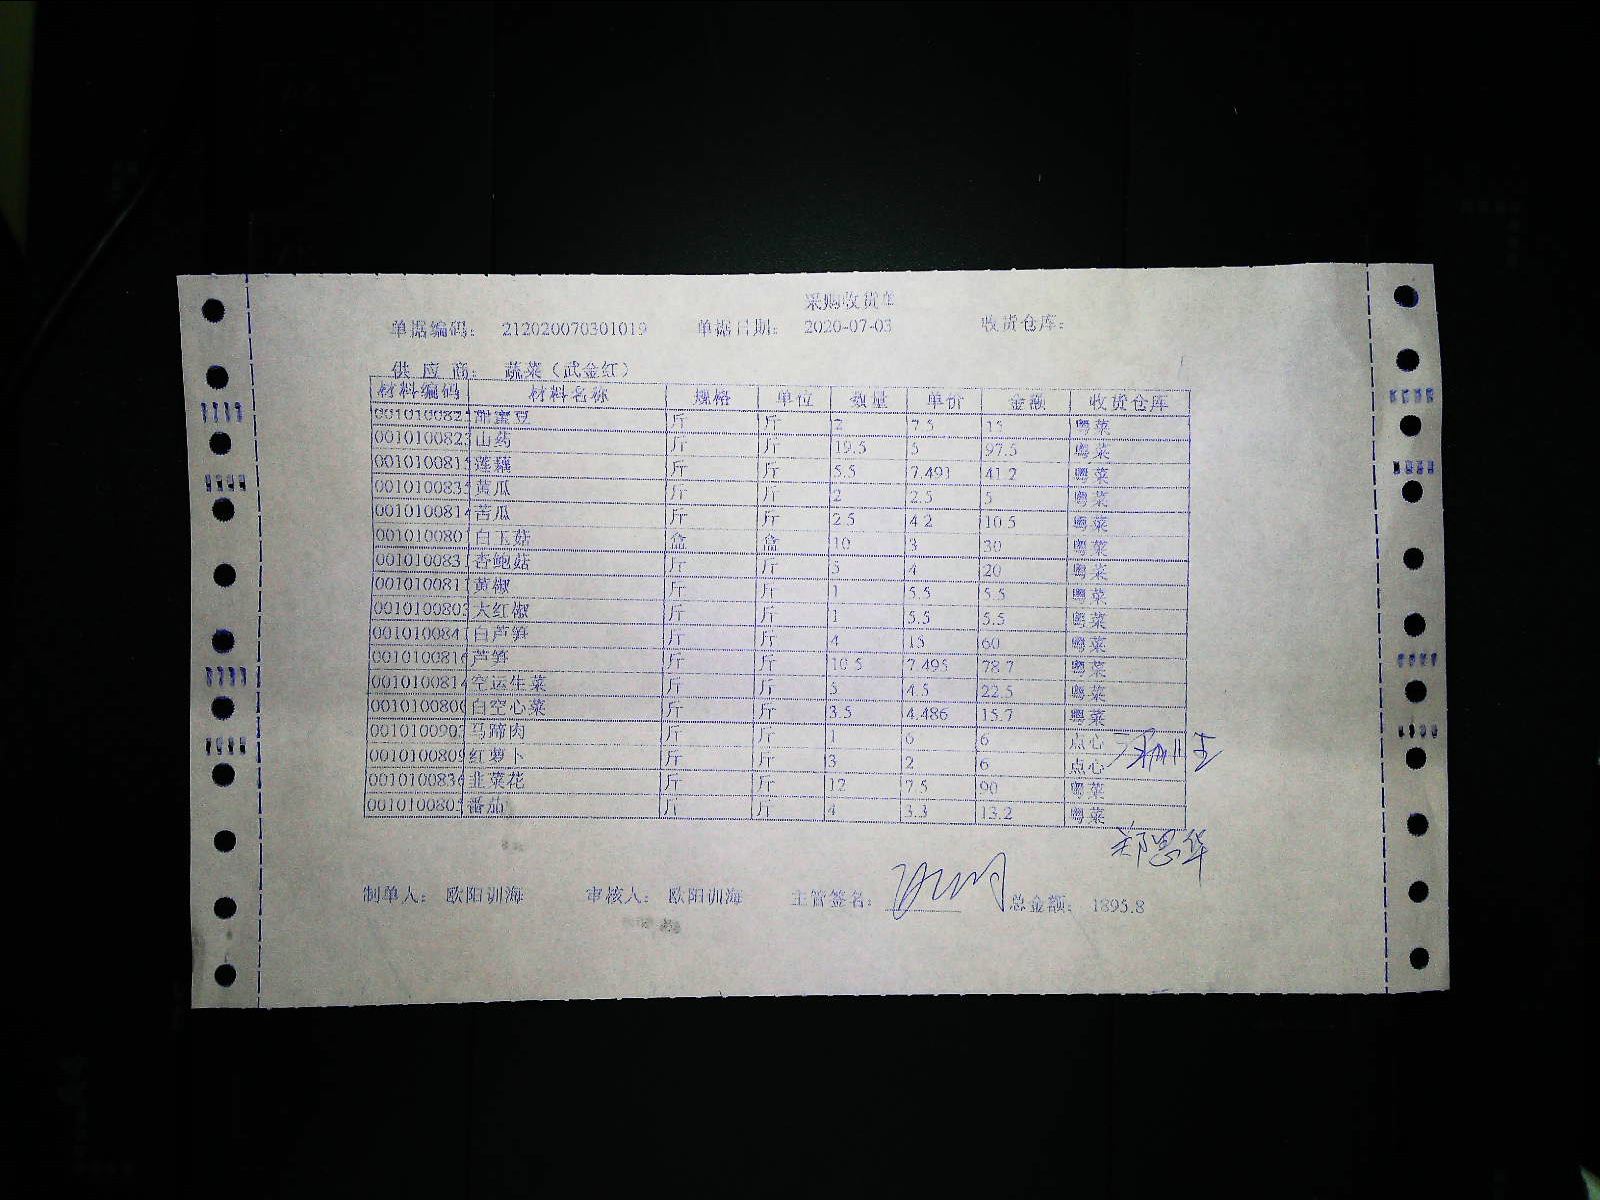 采购收货单
单据编码： 212020070301019 单据日期： 2020-07-03 收货仓库：
供 应 商： 蔬菜（武金红）
材料编码 材料名称 规格 单位 数量 单价 金额 收货仓库
001010082 甜蜜豆 斤 斤 2 7.5 15 粤菜
001010082 山药 斤 斤 19.5 5 97.5 粤菜
001010081 莲藕 斤 斤 5.5 7.491 41.2 粤菜
001010083 黄瓜 斤 斤 2 2.5 5 粤菜
001010081 苦瓜 斤 斤 2.5 4.2 10.5 粤菜
001010080 白玉菇 盒 盒 10 3 30 粤菜
001010083 杏鲍菇 斤 斤 5 4 20 粤菜
001010081 黄椒 斤 斤 1 5.5 5.5 粤菜
001010080 大红椒 斤 斤 1 5.5 5.5 粤菜
001010084 白芦笋 斤 斤 4 15 60 粤菜
001010081 芦笋 斤 斤 10.5 7.495 78.7 粤菜
001010081 空运生菜 斤 斤 5 4.5 22.5 粤菜
001010080 白空心菜 斤 斤 3.5 4.486 15.7 粤菜
001010090 马蹄肉 斤 斤 1 6 6 点心
001010080 红萝卜 斤 斤 3 2 6 点心
001010083 韭菜花 斤 斤 12 7.5 90 粤菜
001010080 番茄 斤 斤 4 3.3 13.2 粤菜
郑恩华
制单人： 欧阳训海 审核人： 欧阳训海 主管签名： 总金额： 1895.8